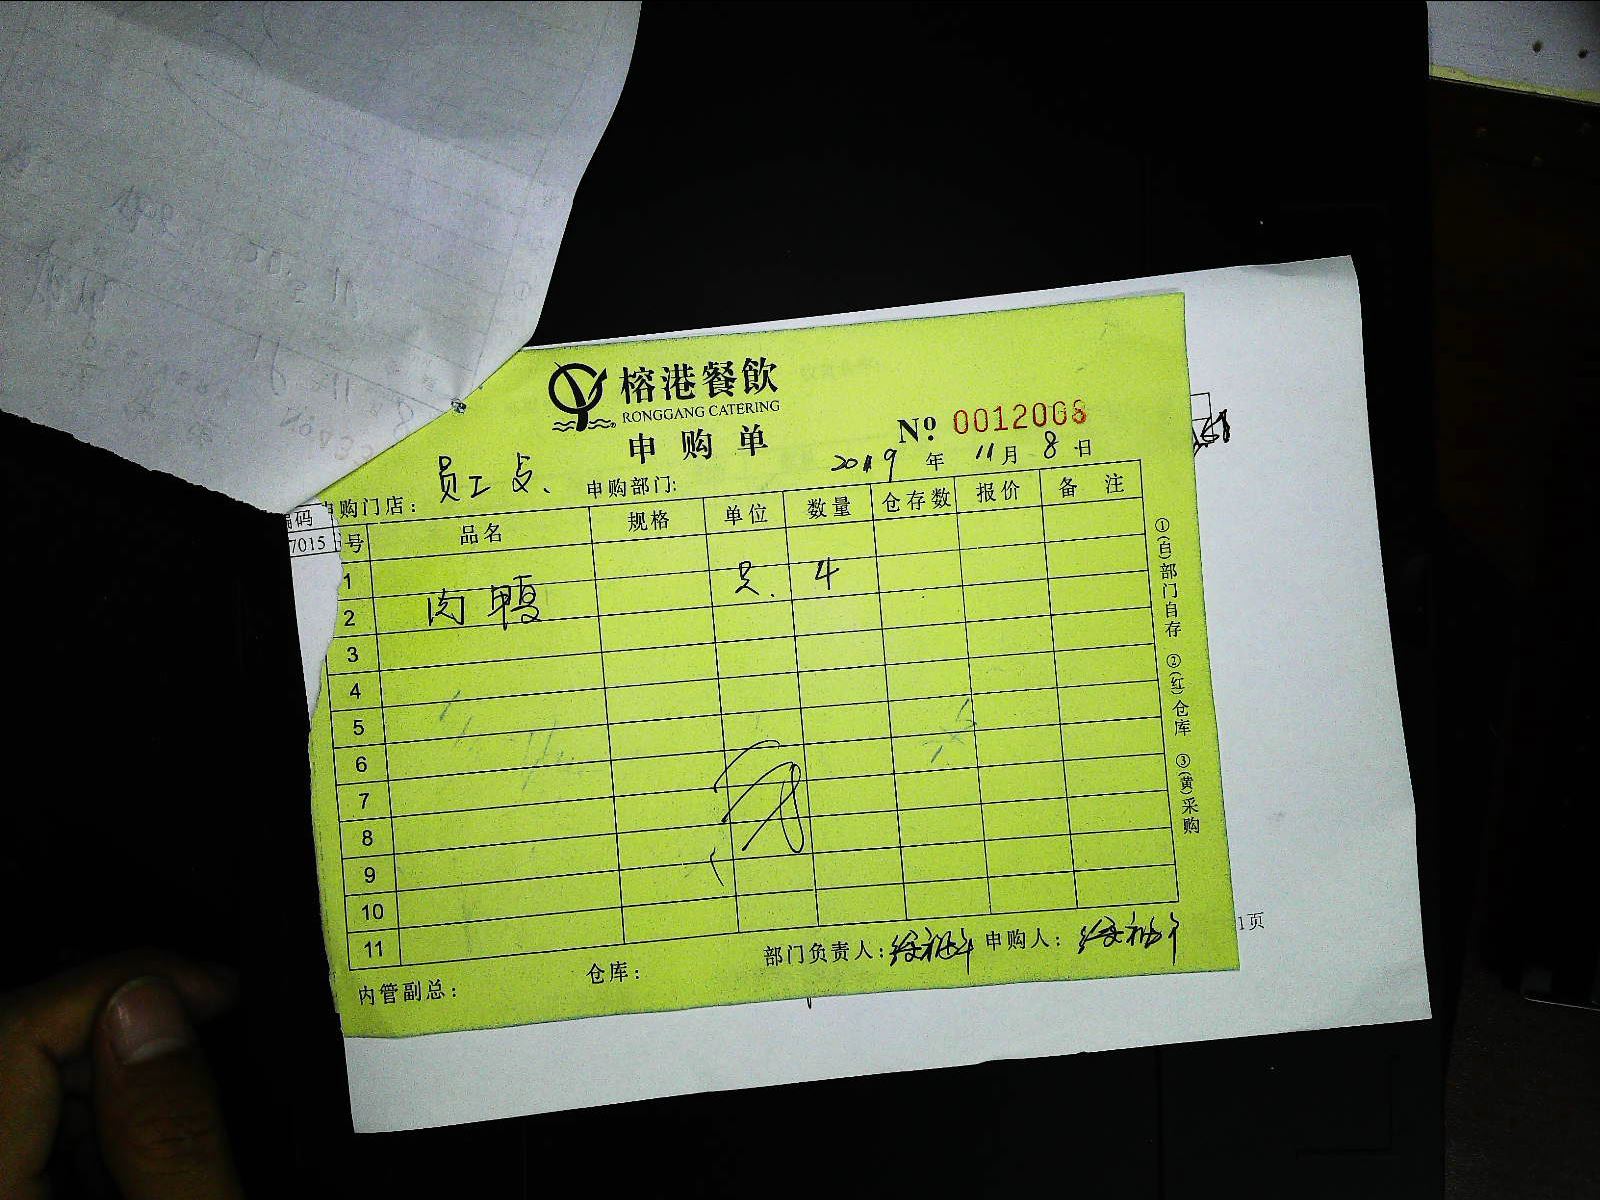 榕港餐飲
RONGGANG CATERING
申购单
Nº 0012008
2019年11月8日
申购门店: 员工 申购部门:
编码
7015
号 品名 规格 单位 数量 仓存数 报价 备注
1
2 肉鸭 只. 4
3
4
5
6
7
8
9
10
11
①(白)部门自存 ②(红)仓库 ③(黄)采购
内管副总: 仓库: 部门负责人: 申购人:
1页